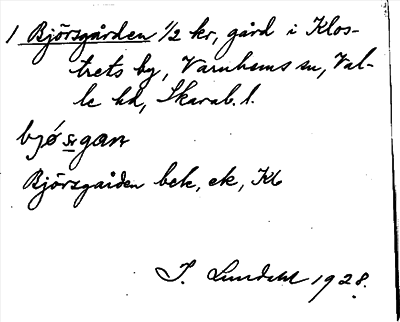 1 Björsgården 1/2 kr, gård i Klos-
trets by, Varnhems sn, Val-
le hd, Skarab. l.
bjǿṣgan
Björsgården bek, ek, Kb
I. Lundahl 1928.